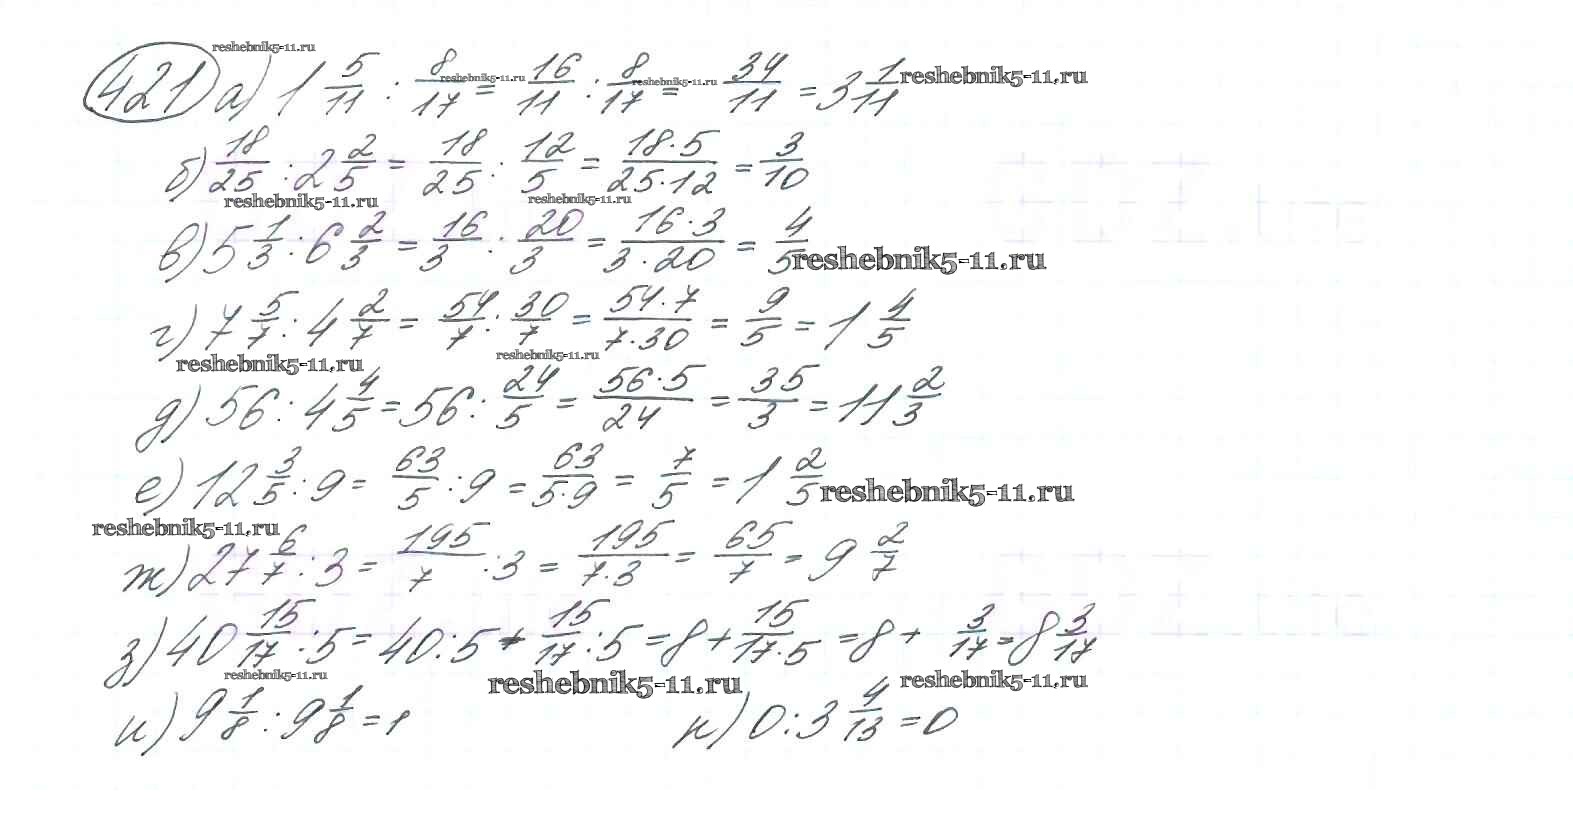 reshebnik5-11.ru
421 а) 1 5/11 : 8/17 = 16/11 : 8/17 = 34/11 = 3 1/11 reshebnik5-11.ru reshebnik5-11.ru reshebnik5-11.ru
б) 18/25 : 2 2/5 = 18/25 : 12/5 = 18·5/25·12 = 3/10
reshebnik5-11.ru reshebnik5-11.ru
в) 5 1/3 : 6 2/3 = 16/3 : 20/3 = 16·3/3·20 = 4/5 reshebnik5-11.ru
г) 7 5/7 : 4 2/7 = 54/7 : 30/7 = 54·7/7·30 = 9/5 = 1 4/5
reshebnik5-11.ru reshebnik5-11.ru
д) 56 : 4 4/5 = 56 : 24/5 = 56·5/24 = 35/3 = 11 2/3
е) 12 3/5 : 9 = 63/5 : 9 = 63/5·9 = 7/5 = 1 2/5 reshebnik5-11.ru
reshebnik5-11.ru
ж) 27 6/7 : 3 = 195/7 : 3 = 195/7·3 = 65/7 = 9 2/7
з) 40 15/17 : 5 = 40 : 5 + 15/17 : 5 = 8 + 15/17·5 = 8 + 3/17 = 8 3/17
reshebnik5-11.ru reshebnik5-11.ru reshebnik5-11.ru
и) 9 1/8 : 9 1/8 = 1 к) 0 : 3 4/13 = 0